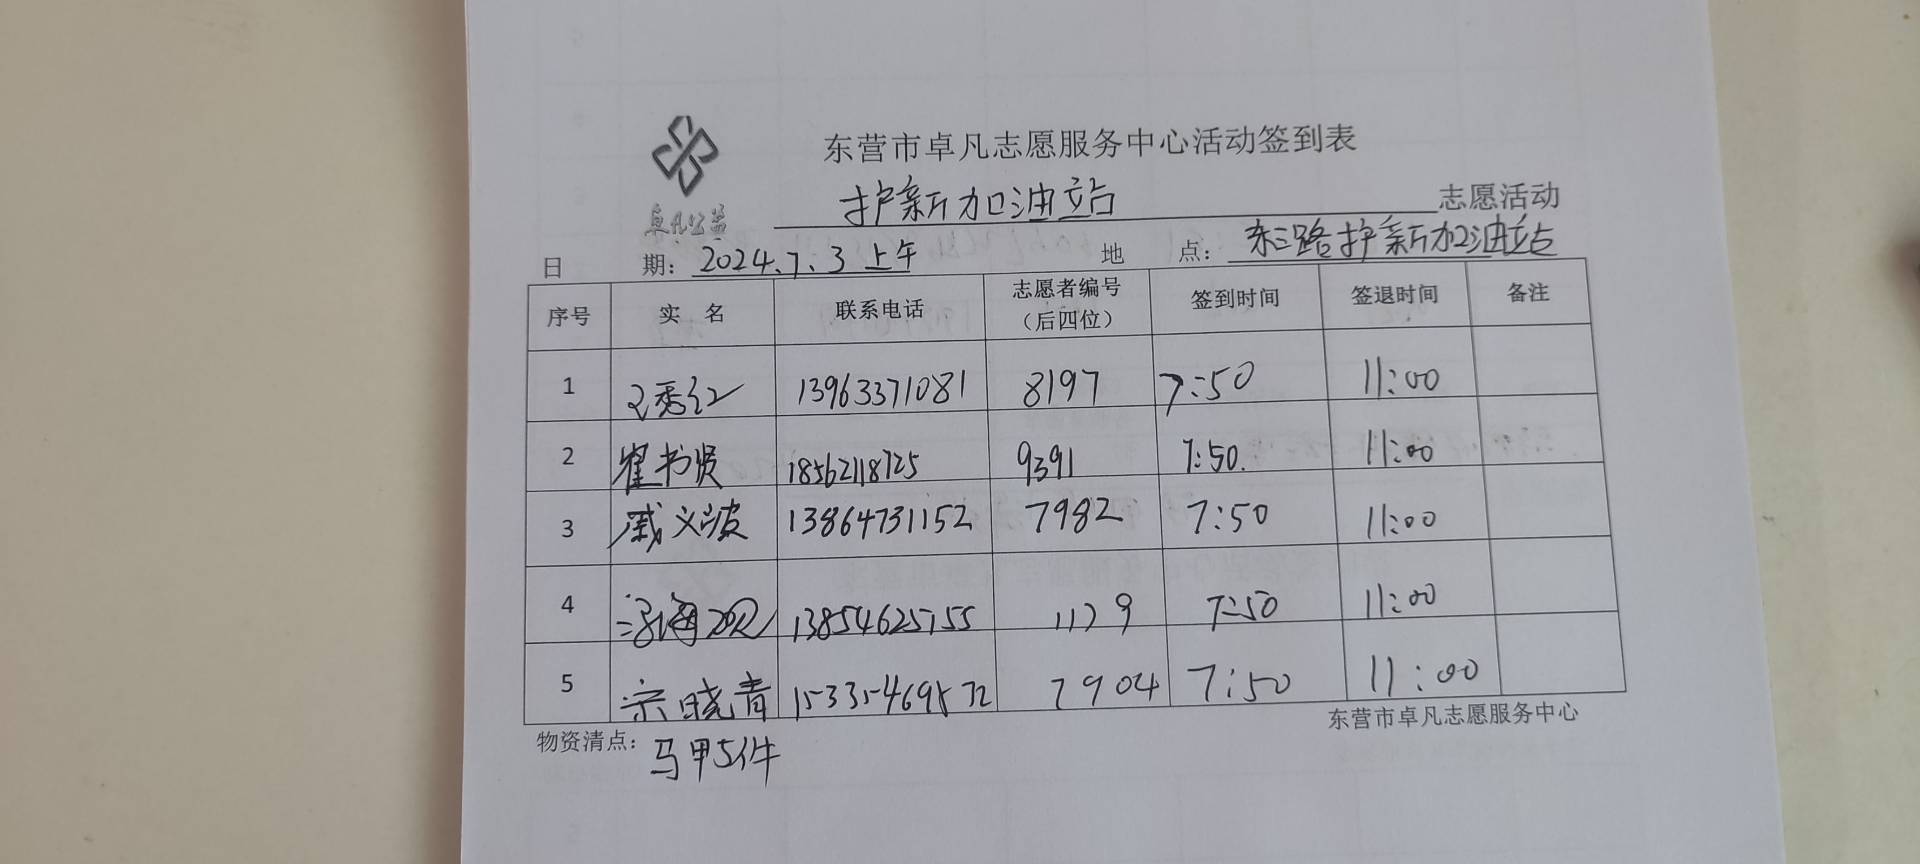 东营市卓凡志愿服务中心活动签到表
卓凡公益
护新加油站 志愿活动
日 期: 2024.7.3 上午 地 点: 东三路护新加油站
序号 实 名 联系电话 志愿者编号（后四位） 签到时间 签退时间 备注
1 13963371081 8197 7:50 11:00
2 翟书贤 18562118725 9391 7:50 11:00
3 戚义波 13864731152 7982 7:50 11:00
4 13854625755 1129 7:50 11:00
5 宗晓青 7904 7:50 11:00
东营市卓凡志愿服务中心
物资清点: 马甲5件